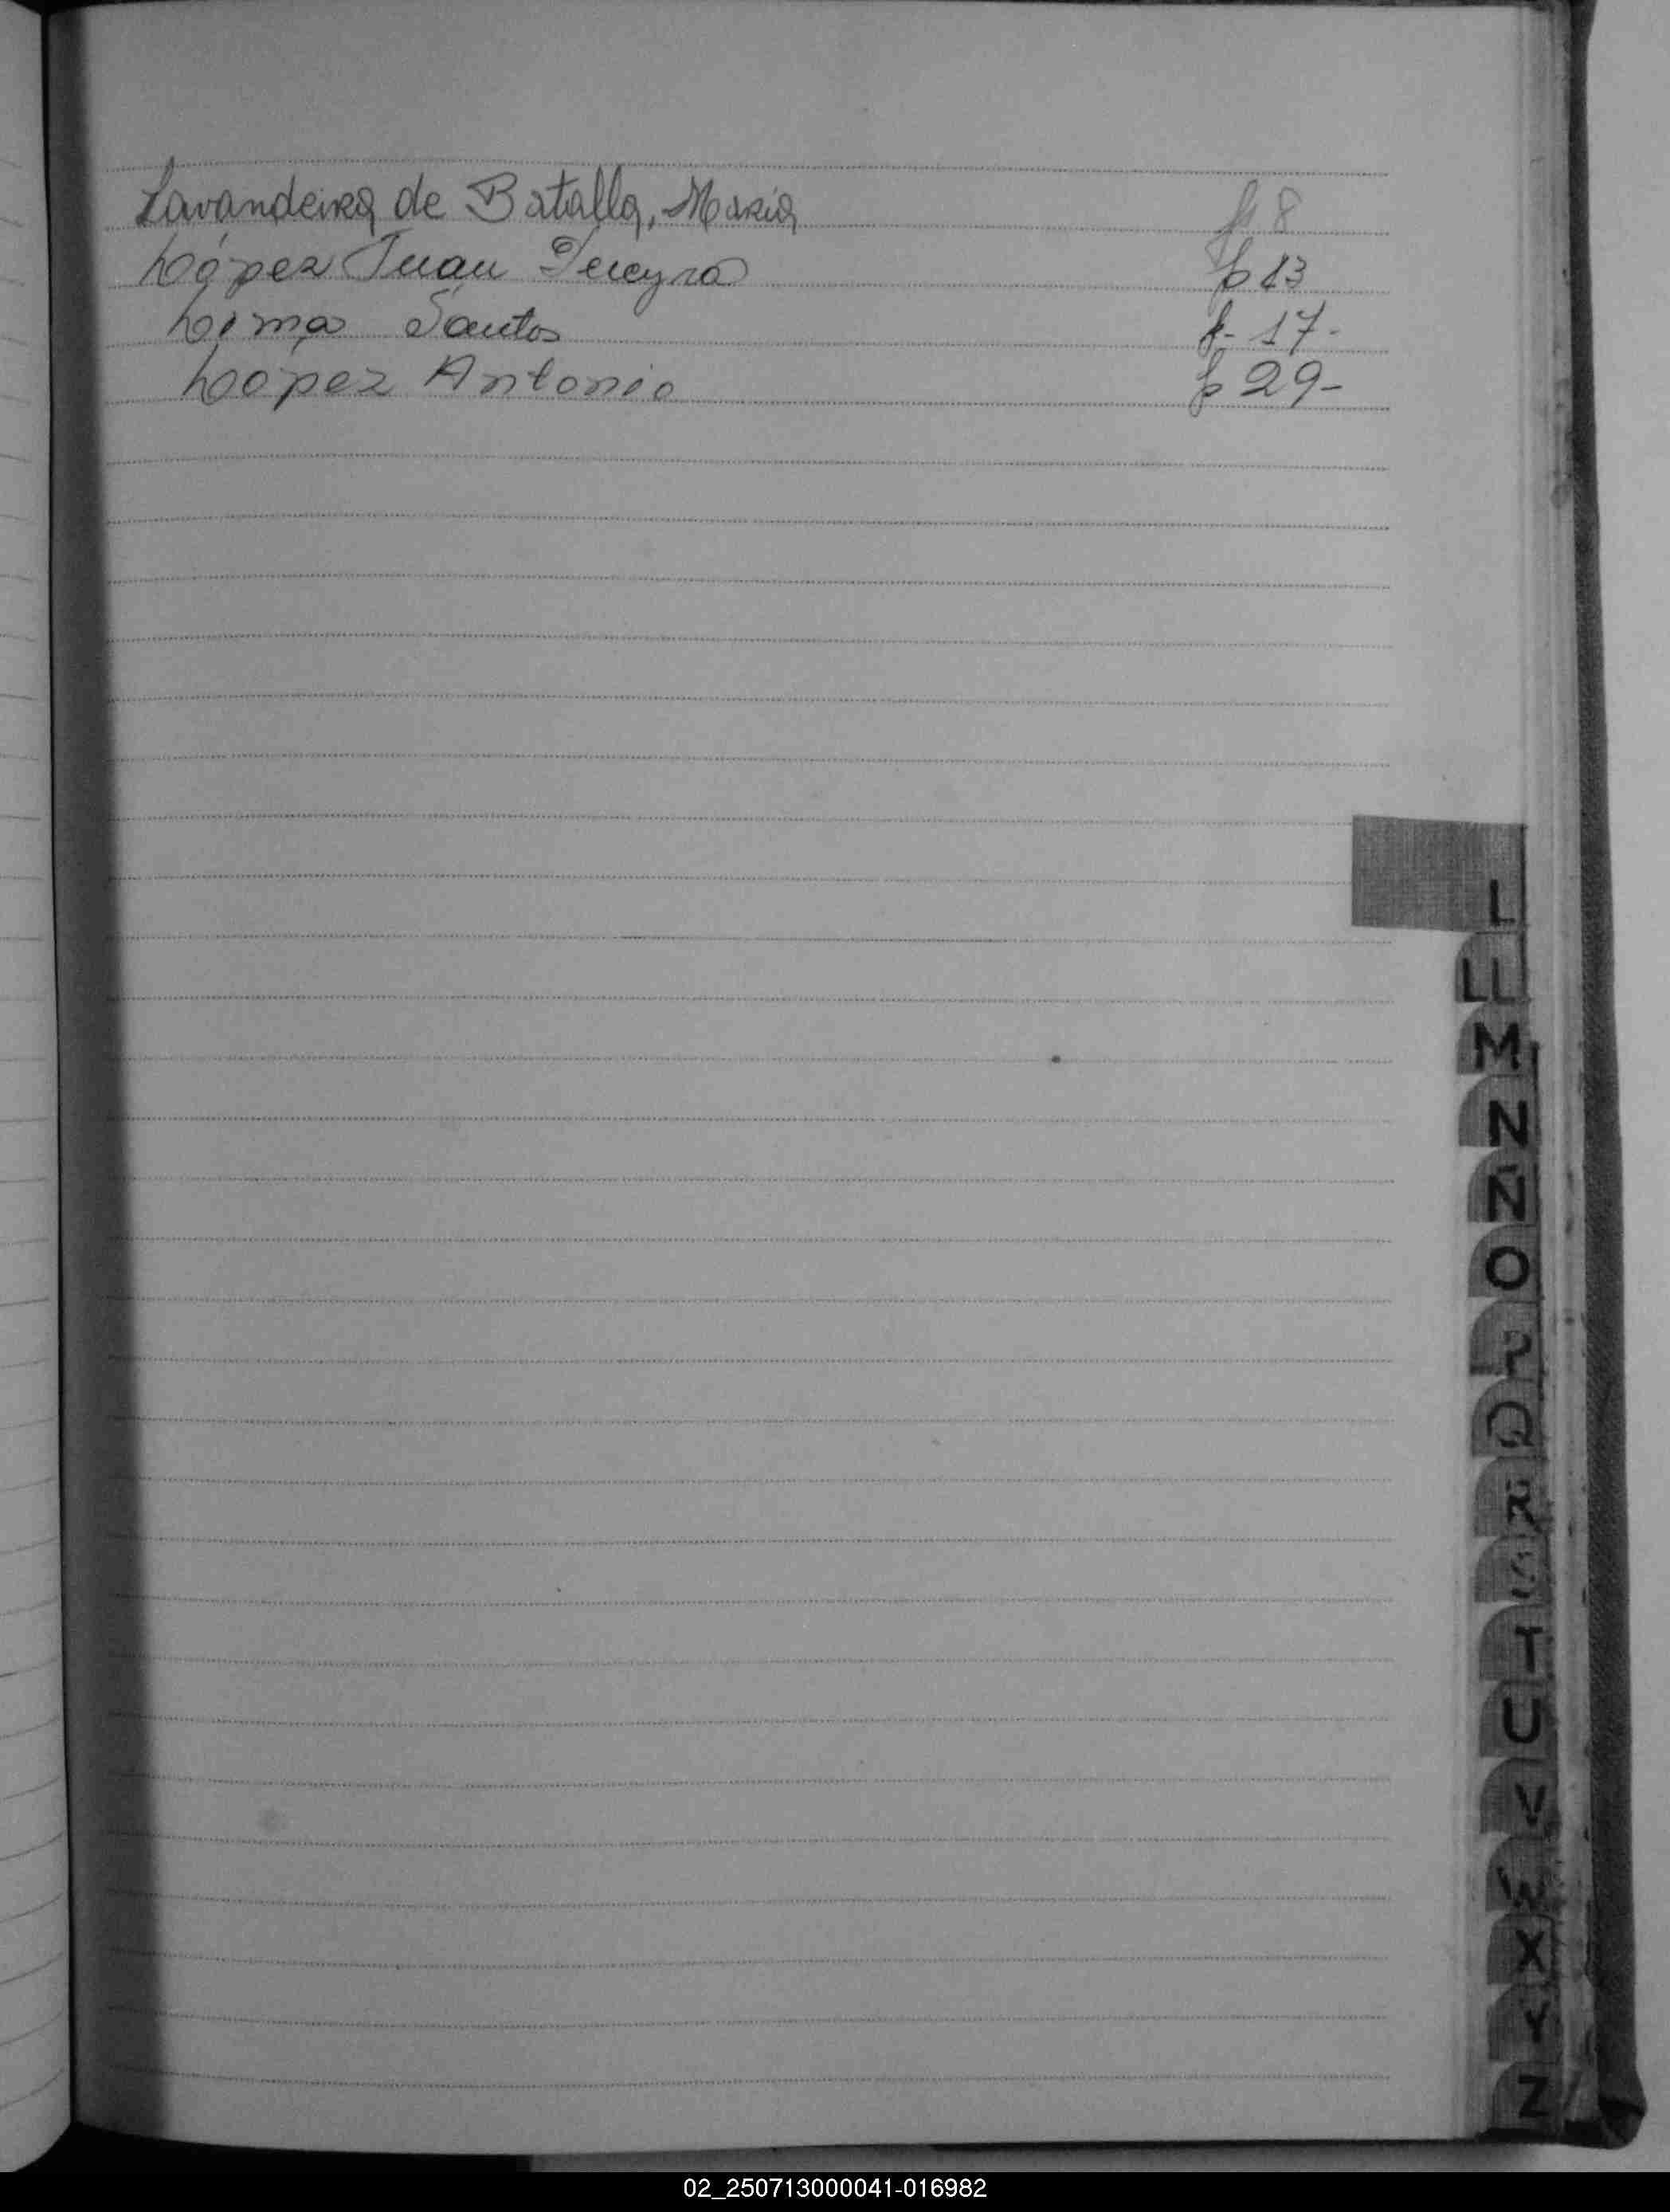 Lavandeira de Batalla, Maria f 8
López Juan Pereyra f 13
Lima Santos f- 17-
López Antonio f 29-
L
LL
M
N
Ñ
O
P
Q
R
S
T
U
V
W
X
Y
Z
02_250713000041-016982